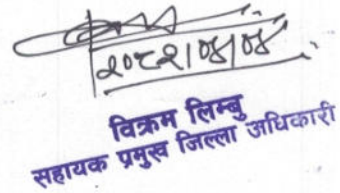 २०८२।०४।०४
विक्रम लिम्बु
सहायक प्रमुख जिल्ला अधिकारी